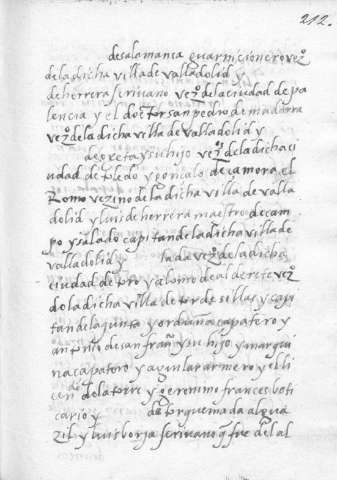 212.
de salamanca guarnicionero vezº
de la dicha villa de valladolid y
de herrera scrivano vezº de la ciudad de pa
lencia y el doctor san pedro de madarra
vezº de la dicha villa de valladolid y
de greta y su hijo vezºs de la dicha ci
udad de toledo y gonçalo de çamora el
Romo vezino de la dicha villa de valla
dolid y luis de herrera maestro de cam
po y salado capitan de la dicha villa de
valladolid y tada vezº de la dicha
ciudad de toro y alonso de alderete vezº
de la dicha villa de tordesillas y capi
tan de la junta y ordaña çapatero y
antonio de san fran y su hijo y marqui
na çapatero y aguilar armero y el li
cendo de la torre y geronimo frances boti
cario y de torquemada algua
zil y luis borja scrivano que fue del al